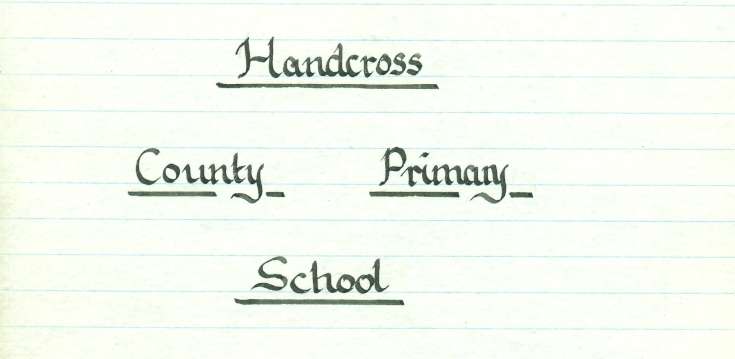 Handcross
County Primary
School